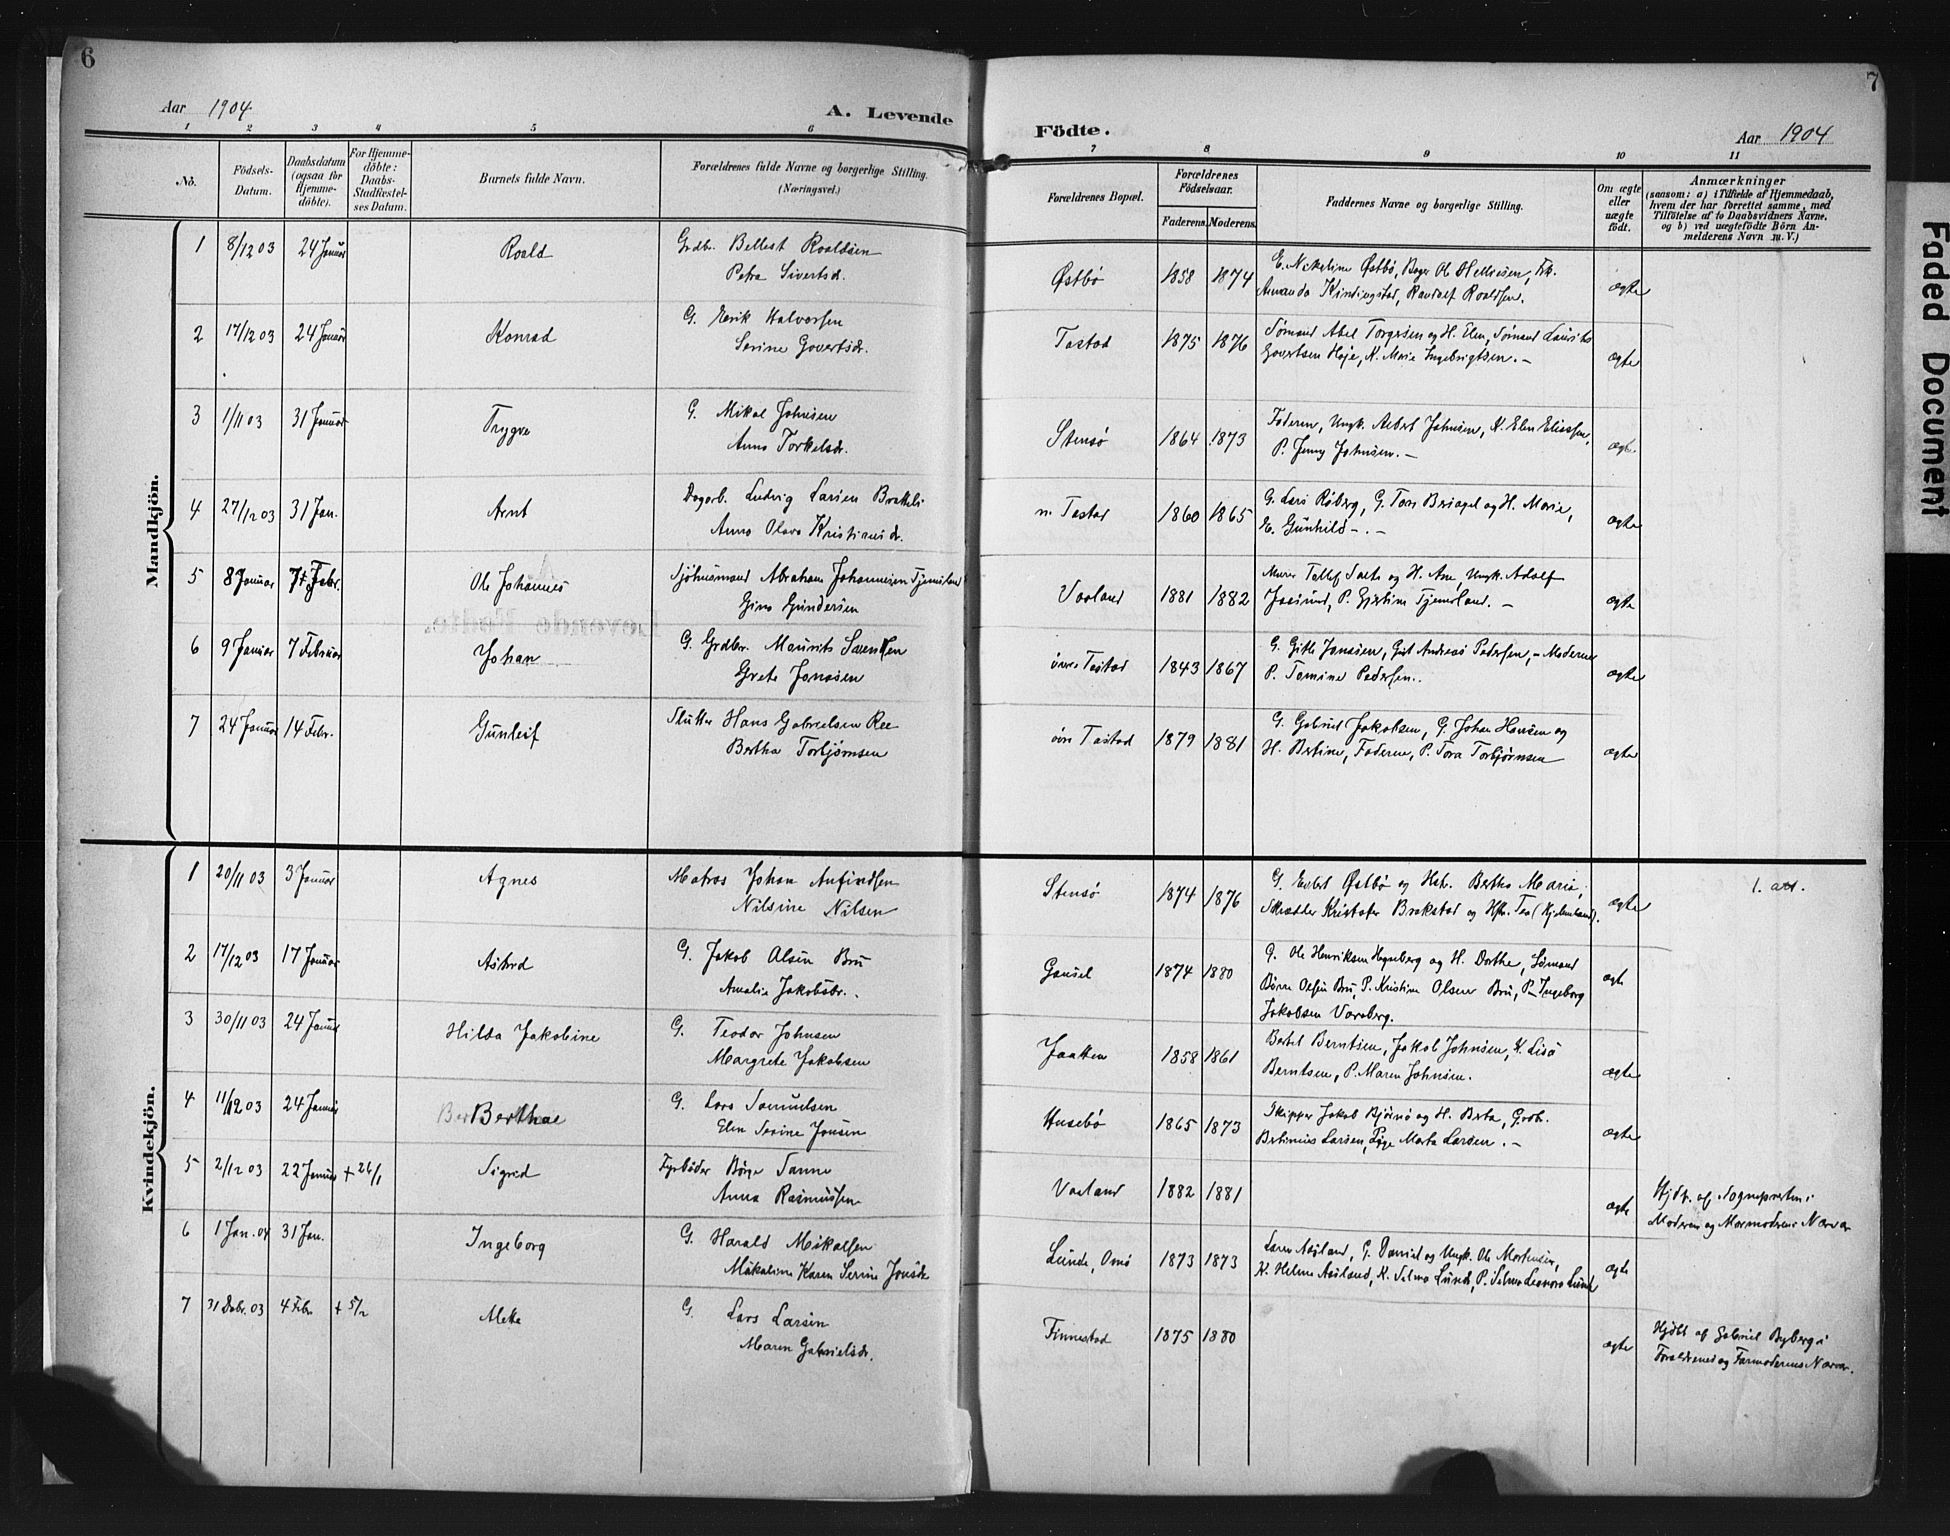 6
7
Aar 1904
A. Levende
Födte.
Aar 1904
1 2 3 4 5 6
7 8 9 10 11
No.
Födsels-
Datum.
Daabsdatum
(ogsaa for
Hjemme-
döbte).
For Hjemme-
döbte:
Daabs-
Stadfæstel-
ses Datum.
Barnets fulde Navn.
Forældrenes fulde Navne og borgerlige Stilling.
(Næringsvei.)
Forældrenes Bopæl.
Forældrenes
Födselsaar.
Faderens. Moderens.
Faddernes Navne og borgerlige Stilling.
Om ægte
eller
uægte
födt.
Anmærkninger
(saasom: a) i Tilfælde af Hjemmedaab,
hvem der har forrettet samme, med
Tilföielse af to Daabsvidners Navne.
og b) ved uægtefödte Börn An-
melderens Navn m. V.)
Mandkjön.
1 8/12 03 24 Januar Roald Grdbr. Bellest Roaldsen
Petra Sivertsd.
Østbø 1858 1874 E. Nikoline Østbø, Bager Ol. Helliesen, Frk.
Amanda Kindingstad, Randolf Roaldsen. ægte
2 17/12 03 24 Januar Konrad G. Erik Halvorsen
Serine Govertsdr.
Tastad 1875 1876 Sømand Abel Torgersen og H. Elen, Sømand Laurits
Govertsen Høje, K. Marie Ingebrigtsen. — ægte
3 1/11 03 31 Januar Trygve G. Mikal Johnsen
Anna Torkelsdr.
Stensø 1864 1873 Faderen, Ungk. Albert Johnsen, K. Elen Eliassen,
P. Jenny Johnsen. — ægte
4 27/12 03 31 Jan. Arnt Dagarb. Ludvig Larsen Brekkli
Anna Olava Kristinesdr.
n. Tastad 1860 1865 G. Lars Røberg, G. Tore Beriagel og H. Marie,
E. Gunhild — . — ægte
5 8 Januar 7 Febr. Ole Johannes Sjømand Abraham Johannesen Tjemsland
Gina Gundersen
Vaaland 1881 1882 Murer Tallef Sæte og H. Ane, Ungk. Adolf
Jaasund, P. Gjertine Tjemsland. — ægte
6 9 Januar 7 Februar Johan G. Grdbr. Maurits Svendsen
Grete Jonasen
øvre Tastad 1843 1867 G. Gitle Jonasen, Gut Andreas Pedersen, — Moderen
P. Tomine Pedersen.. ægte
7 24 Januar 14 Febr. Gunleif Slutter Hans Gabrielsen Ree
Bertha Torbjørnsen
øvre Tastad 1879 1881 G. Gabriel Jakobsen, G. Johan Hansen og
H. Bertine, Faderen, P. Tora Torbjørnsen ægte
Kvindekjön.
1 20/11 03 3 Januar Agnes Matros Johan Anfindsen
Nilsine Nilsen
Stensø 1874 1876 G. Evbert Østbø og Hst. Bertha Maria,
Skrædder Kristofer Brakstad og Hst. Tea (Hjelmeland). ægte 1. att.
2 17/12 03 17 Januar Astrid G. Jakob Olsen Bru
Amalie Jakobsdr..
Gausel 1874 1880 G. Ole Henriksen Hegneberg og H. Dorthe, Sømand
Børre Olsen Bru, P. Kristine Olsen Bru, P. Ingeborg
Jakobsen Varaberg. ægte
3 30/11 03 24 Januar Hilda Jakobine G. Teodor Johnsen
Margrete Jakobsen
Jaatten 1858 1861 Bertel Berntsen, Jakob Johnsen, K. Lisa
Berntsen, P. Maren Johnsen. ægte
4 11/12 03 24 Januar Berthae G. Lars Samuelsen
Elen Serine Jonsen
Husebø 1865 1873 Skipper Jakob Bjørnø og H. Berta, Grdbr.
Bertinius Larsen, Pige Marta Larsen. — ægte
5 2/12 03 22 Januar + 26/1 Sigrid Fyrbøder Børge Sanne
Anna Rasmussen
Vaaland 1882 1881 ægte Hjdp. af Sognepresten i
Moderens og Mormoderens Nærvær
6 1 Jan. 04 31 Jan. Ingeborg G. Harald Mikalsen
Mikaline Karen Serine Jonsdr.
Lunde, Omø 1873 1873 Laren Aasland, G. Daniel og Ungk. Ole Mortensen,
K. Helene Aasland, K. Selma Lunde, P. Selma Leonora Lunde ægte
7 31 Decbr. 03 4 Febr. + 5/2 Mette G. Lars Larsen
Maren Gabrielsdr.
Finnestad 1875 1880 ægte Hjdbt af Gabriel Byberg i
Forældrenes og Farmoderens Nærvær.
Faded Document